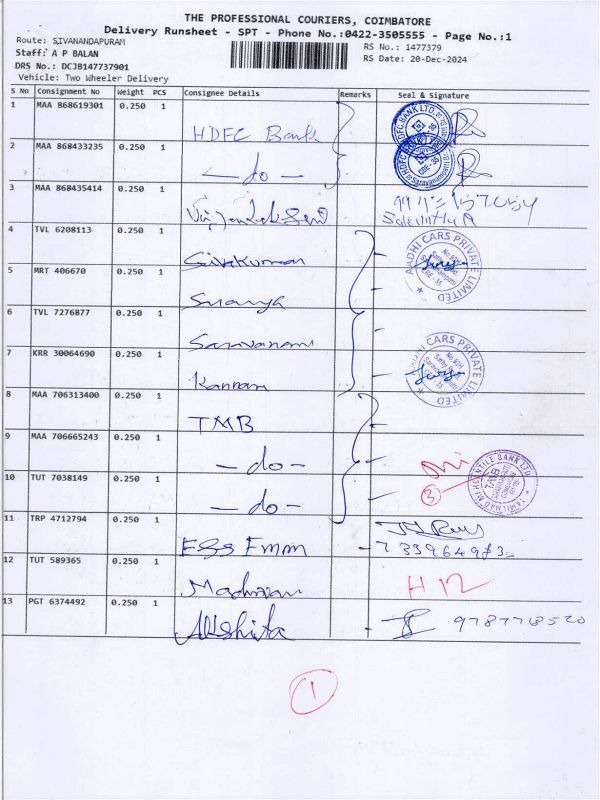 THE PROFESSIONAL COURIERS, COIMBATORE
Delivery Runsheet - SPT - Phone No.:0422-3505555 - Page No.:1
Route: SIVANANDAPURAM
RS No.: 1477379
Staff: A P BALAN
RS Date: 20-Dec-2024
DRS No.: DCJB147737901
Vehicle: Two Wheeler Delivery
S No Consignment No Weight PCS Consignee Details Remarks Seal & Signature
1 MAA 868619301 0.250 1 HDFC Bank
2 MAA 868433235 0.250 1 - do -
3 MAA 868435414 0.250 1
4 TVL 6208113 0.250 1 Sivakumar AADHI CARS PRIVATE LIMITED
5 MRT 406670 0.250 1
6 TVL 7276877 0.250 1 Saravanan
7 KRR 30064690 0.250 1 Kannan AADHI CARS PRIVATE LIMITED
8 MAA 706313400 0.250 1 TMB
9 MAA 706665243 0.250 1 - do -
10 TUT 7038149 0.250 1 - do - 3 TAMILNAD MERCANTILE BANK LTD
11 TRP 4712794 0.250 1
12 TUT 589365 0.250 1 H12
13 PGT 6374492 0.250 1 Akshita
1